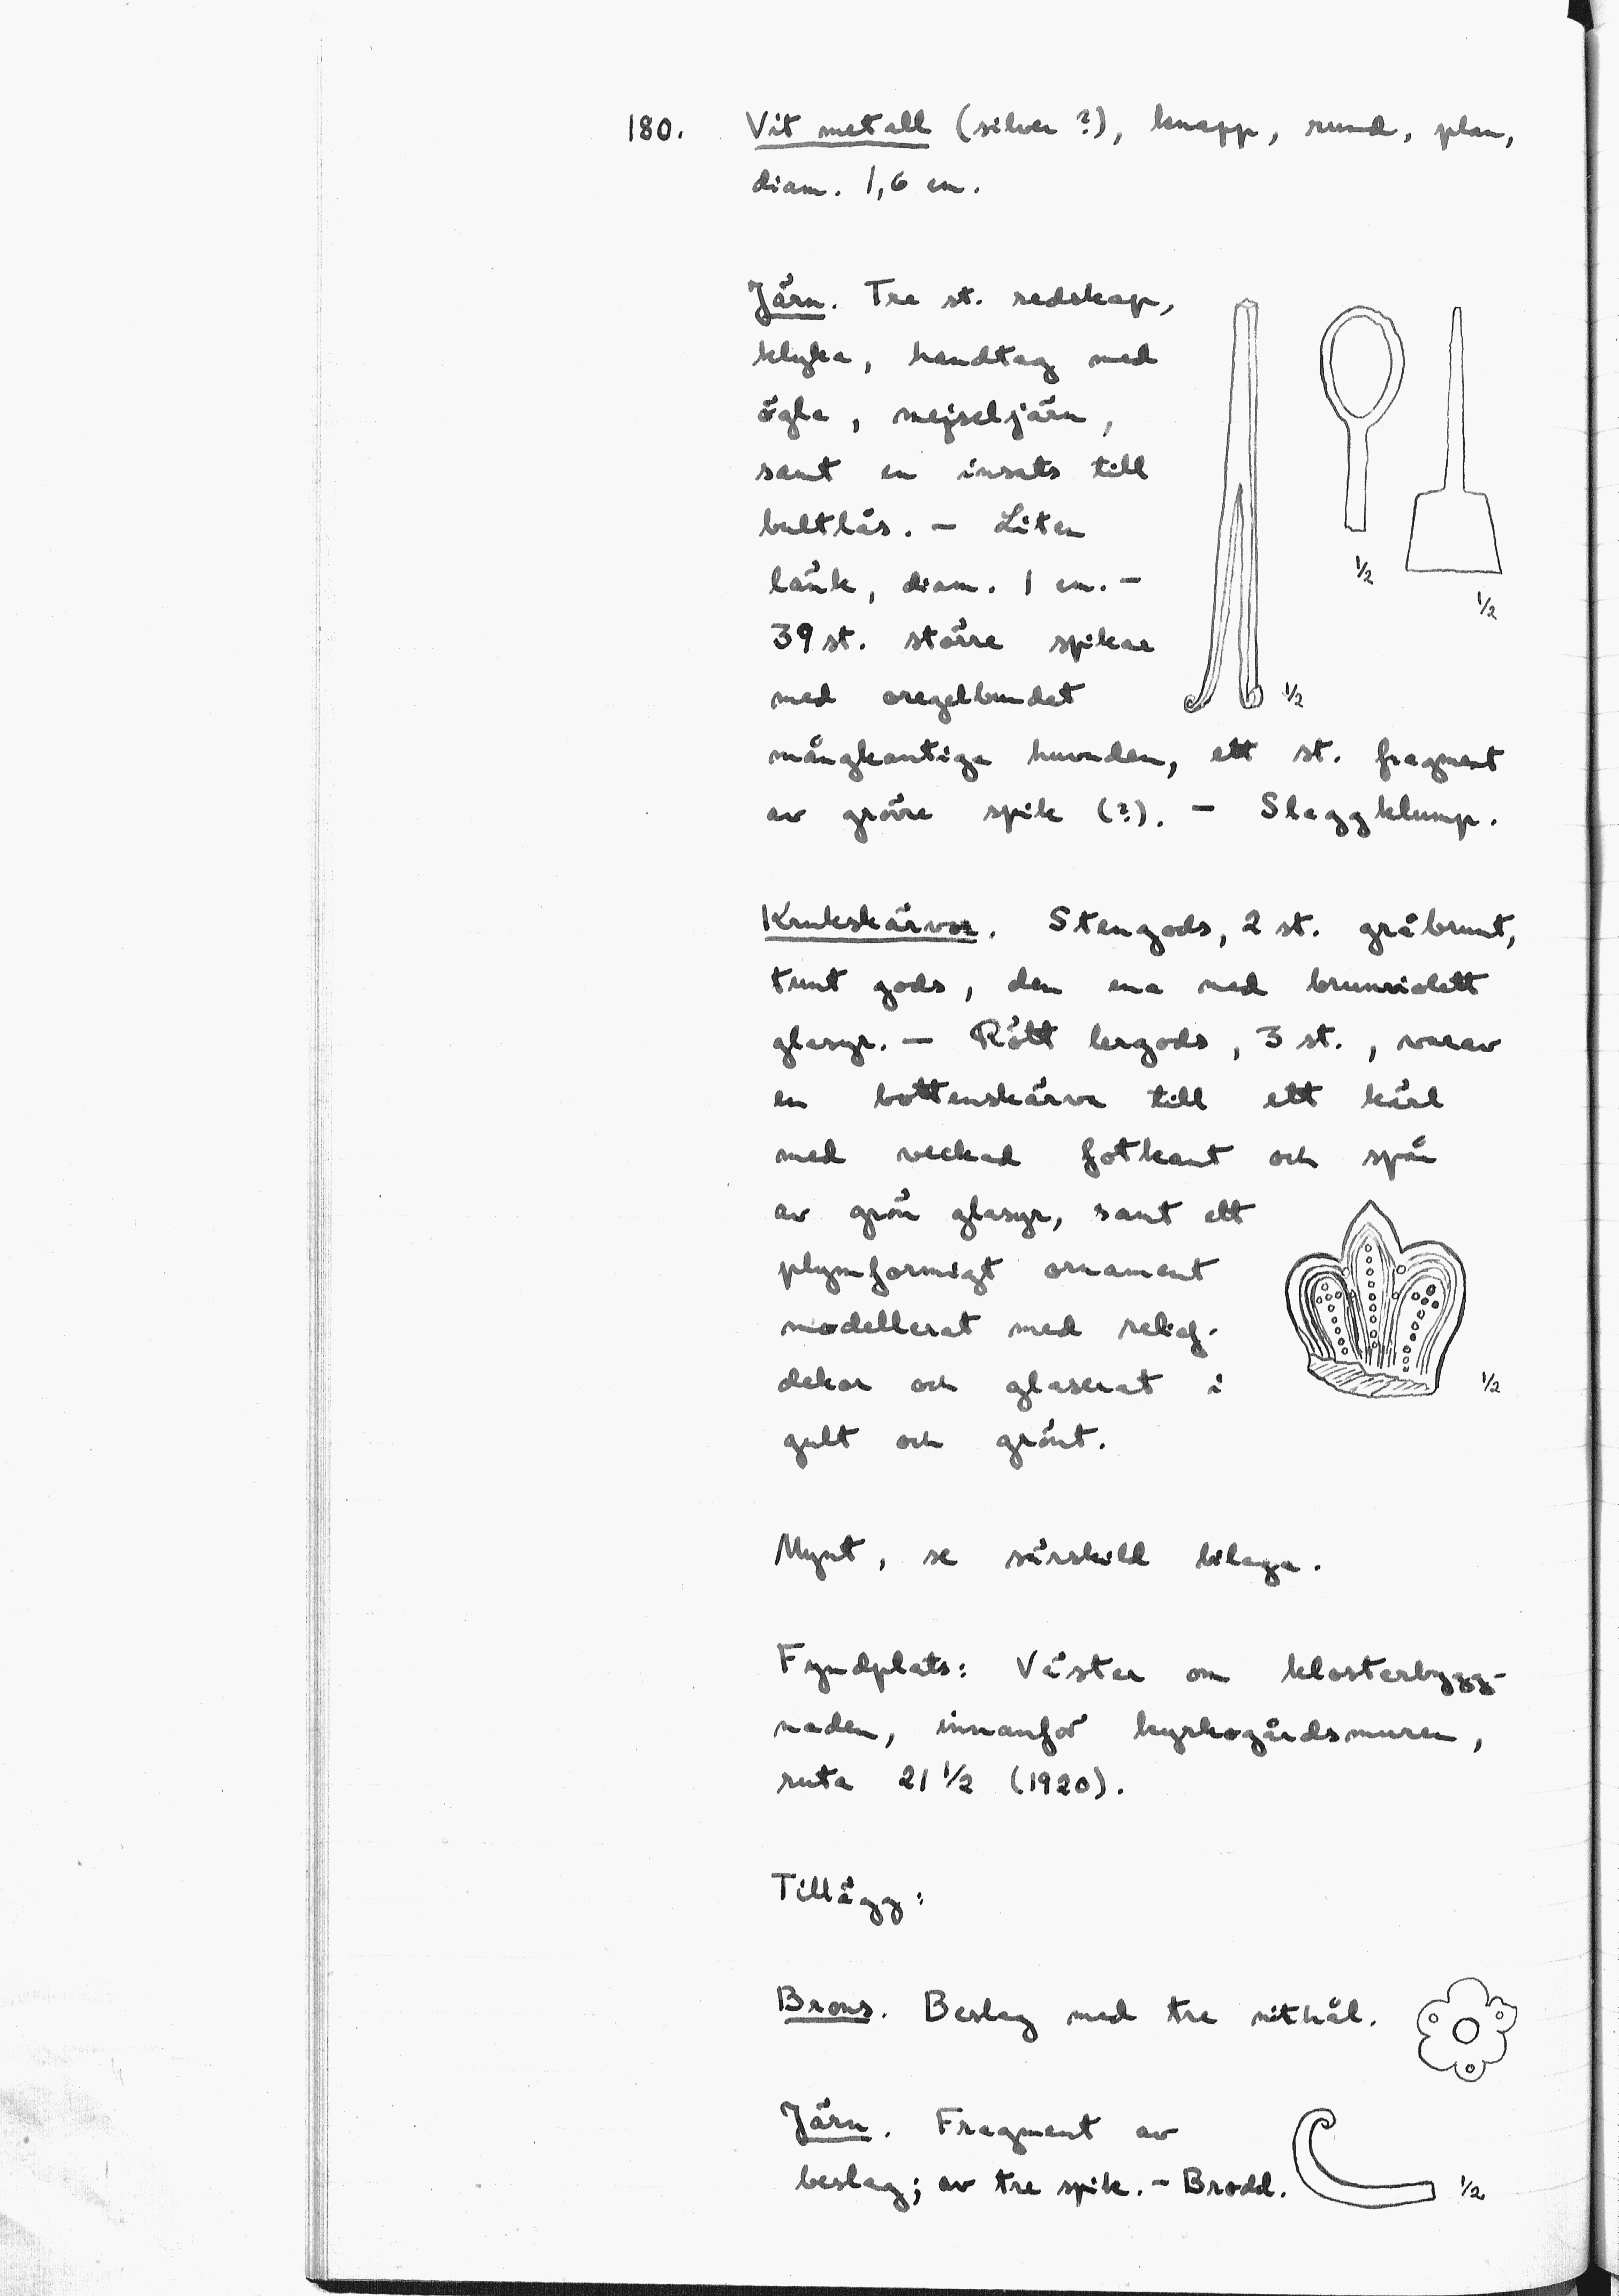 180. Vit metall (silver ?), knapp, rund, plan,
diam. 1,6 cm.
Järn. Tre st. redskap,
klyka, handtag med
ögla, mejseljärn,
samt en insats till
bultlås. – Liten
länk, diam. 1 cm. –
39 st. större spikar
med oregelbundet
mångkantiga huvuden, ett st. fragment
av grövre spik (?). – Slaggklump.
1/2
1/2
1/2
Krukskärvor. Stengods, 2 st. gråbrunt,
tunt gods, den ena med brunviolett
glasyr. – Rött lergods, 3 st., varav
en bottenskärva till ett kärl
med veckad fotkant och spår
av grön glasyr, samt ett
plymformigt ornament
modellerat med relief-
dekor och glaserat i
gult och grönt.
1/2
Mynt, se särskild bilaga.
Fyndplats: Väster om klosterbygg-
naden, innanför kyrkogårdsmuren,
ruta 21 1/2 (1920).
Tillägg:
Brons. Beslag med tre nithål.
Järn. Fragment av
beslag; av tre spik. – Brodd.
1/2